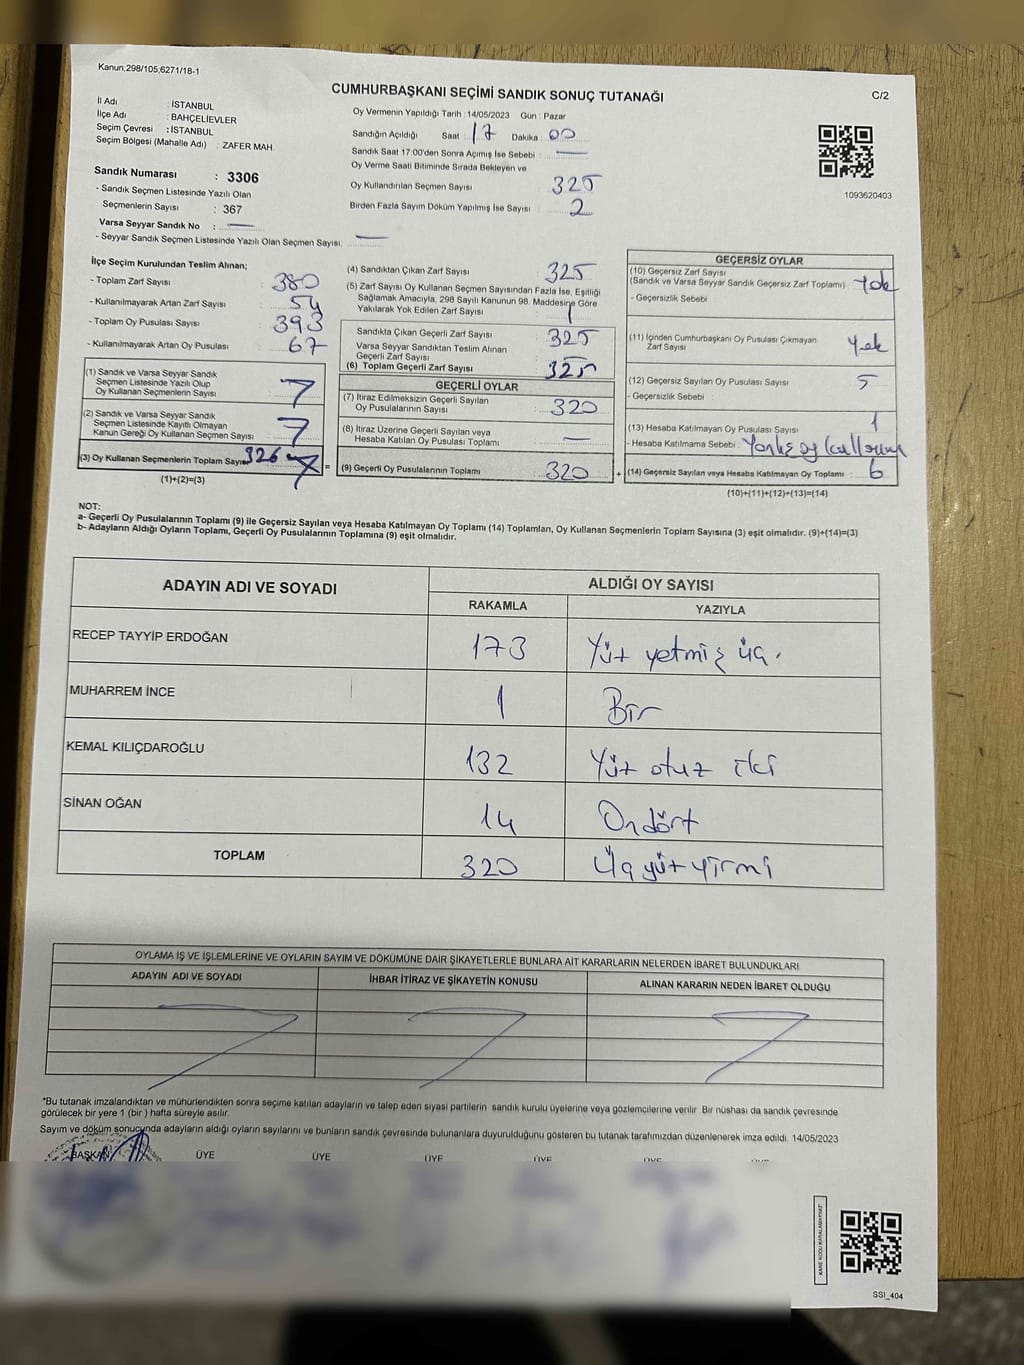 Kanun;298/105;6271/18-1
CUMHURBAŞKANI SEÇİMİ SANDIK SONUÇ TUTANAĞI
C/2
İl Adı : İSTANBUL
İlçe Adı : BAHÇELİEVLER
Seçim Çevresi : İSTANBUL
Seçim Bölgesi (Mahalle Adı) : ZAFER MAH.
Sandık Numarası : 3306
- Sandık Seçmen Listesinde Yazılı Olan
Seçmenlerin Sayısı : 367
Varsa Seyyar Sandık No : —
- Seyyar Sandık Seçmen Listesinde Yazılı Olan Seçmen Sayısı: —
Oy Vermenin Yapıldığı Tarih : 14/05/2023 Gün : Pazar
Sandığın Açıldığı Saat : 17 Dakika : 00
Sandık Saat 17:00'den Sonra Açımış İse Sebebi : —
Oy Verme Saati Bitiminde Sırada Bekleyen ve
Oy Kullandırılan Seçmen Sayısı : 325
Birden Fazla Sayım Döküm Yapılmış İse Sayısı : 2
1093620403
İlçe Seçim Kurulundan Teslim Alınan;
- Toplam Zarf Sayısı : 380
- Kullanılmayarak Artan Zarf Sayısı : 54
- Toplam Oy Pusulası Sayısı : 393
- Kullanılmayarak Artan Oy Pusulası : 67
(1) Sandık ve Varsa Seyyar Sandık
Seçmen Listesinde Yazılı Olup
Oy Kullanan Seçmenlerin Sayısı :
(2) Sandık ve Varsa Seyyar Sandık
Seçmen Listesinde Kayıtlı Olmayan
Kanun Gereği Oy Kullanan Seçmen Sayısı :
(3) Oy Kullanan Seçmenlerin Toplam Sayısı 326
(1)+(2)=(3)
(4) Sandıktan Çıkan Zarf Sayısı : 325
(5) Zarf Sayısı Oy Kullanan Seçmen Sayısından Fazla İse, Eşitliği
Sağlamak Amacıyla, 298 Sayılı Kanunun 98. Maddesine Göre
Yakılarak Yok Edilen Zarf Sayısı : 1
Sandıkta Çıkan Geçerli Zarf Sayısı : 325
Varsa Seyyar Sandıktan Teslim Alınan
Geçerli Zarf Sayısı :
(6) Toplam Geçerli Zarf Sayısı : 325
GEÇERLİ OYLAR
(7) İtiraz Edilmeksizin Geçerli Sayılan
Oy Pusulalarının Sayısı : 320
(8) İtiraz Üzerine Geçerli Sayılan veya
Hesaba Katılan Oy Pusulası Toplamı : —
= (9) Geçerli Oy Pusulalarının Toplamı : 320
GEÇERSİZ OYLAR
(10) Geçersiz Zarf Sayısı
(Sandık ve Varsa Seyyar Sandık Geçersiz Zarf Toplamı) : Yok
- Geçersizlik Sebebi
(11) İçinden Cumhurbaşkanı Oy Pusulası Çıkmayan
Zarf Sayısı : Yok
(12) Geçersiz Sayılan Oy Pusulası Sayısı : 5
- Geçersizlik Sebebi :
(13) Hesaba Katılmayan Oy Pusulası Sayısı : 1
- Hesaba Katılmama Sebebi : oy
+ (14) Geçersiz Sayılan veya Hesaba Katılmayan Oy Toplamı : 6
(10)+(11)+(12)+(13)=(14)
NOT:
a- Geçerli Oy Pusulalarının Toplamı (9) ile Geçersiz Sayılan veya Hesaba Katılmayan Oy Toplamı (14) Toplamları, Oy Kullanan Seçmenlerin Toplam Sayısına (3) eşit olmalıdır. (9)+(14)=(3)
b- Adayların Aldığı Oyların Toplamı, Geçerli Oy Pusulalarının Toplamına (9) eşit olmalıdır.
ADAYIN ADI VE SOYADI ALDIĞI OY SAYISI
RAKAMLA YAZIYLA
RECEP TAYYİP ERDOĞAN 173 Yüz yetmiş üç.
MUHARREM İNCE 1 Bir
KEMAL KILIÇDAROĞLU 132 Yüz otuz iki
SİNAN OĞAN 14 Ondört
TOPLAM 320 Üç yüz yirmi
OYLAMA İŞ VE İŞLEMLERİNE VE OYLARIN SAYIM VE DÖKÜMÜNE DAİR ŞİKAYETLERLE BUNLARA AİT KARARLARIN NELERDEN İBARET BULUNDUKLARI
ADAYIN ADI VE SOYADI İHBAR İTİRAZ VE ŞİKAYETİN KONUSU ALINAN KARARIN NEDEN İBARET OLDUĞU
*Bu tutanak imzalandıktan ve mühürlendikten sonra seçime katılan adayların ve talep eden siyasi partilerin sandık kurulu üyelerine veya gözlemcilerine verilir. Bir nüshası da sandık çevresinde
görülecek bir yere 1 (bir ) hafta süreyle asılır.
Sayım ve döküm sonucunda adayların aldığı oyların sayılarını ve bunların sandık çevresinde bulunanlara duyurulduğunu gösteren bu tutanak tarafımızdan düzenlenerek imza edildi. 14/05/2023
BAŞKAN ÜYE ÜYE ÜYE ÜYE ÜYE ÜYE
SSI_404